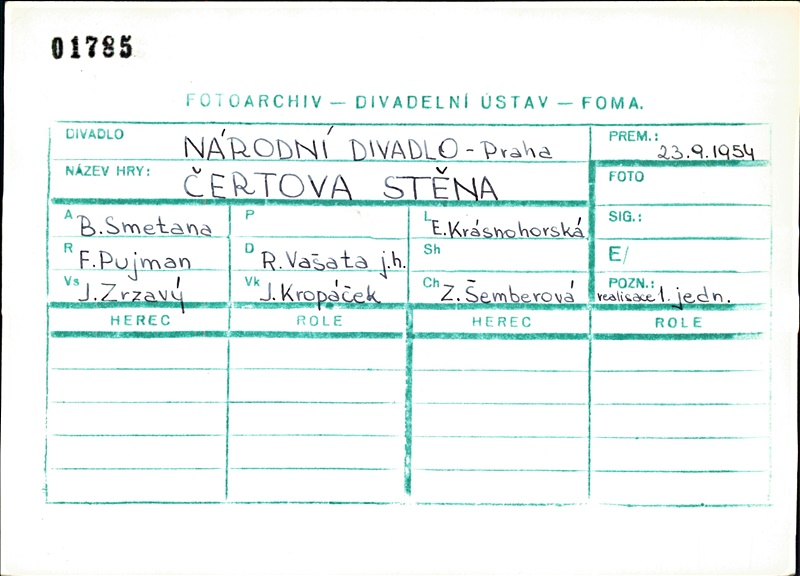 01785
FOTOARCHIV — DIVADELNÍ ÚSTAV — FOMA.
DIVADLO NÁRODNÍ DIVADLO - Praha PREM.: 23.9.1954
NÁZEV HRY: ČERTOVA STĚNA FOTO
A B.Smetana P L E.Krásnohorská SIG.:
R F.Pujman D R.Vašata j.h. Sh E/
Vs J.Zrzavý Vk J.Kropáček Ch Z.Šemberová POZN.: realisace 1. jedn.
HEREC ROLE HEREC ROLE